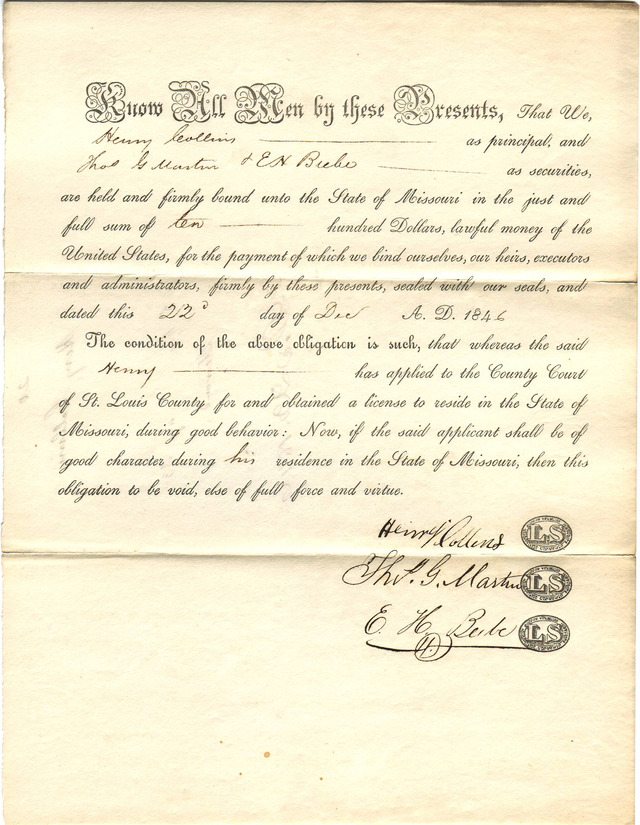 Know All Men by these Presents, That We,
Henry Collins as principal, and
Thos G Martin & E H Beebe as securities,
are held and firmly bound unto the State of Missouri in the just and
full sum of ten hundred Dollars, lawful money of the
United States, for the payment of which we bind ourselves, our heirs, executors
and administrators, firmly by these presents, sealed with our seals, and
dated this 22d day of Dec A. D. 1846
The condition of the above obligation is such, that whereas the said
Henry has applied to the County Court
of St. Louis County for and obtained a license to reside in the State of
Missouri, during good behavior: Now, if the said applicant shall be of
good character during his residence in the State of Missouri, then this
obligation to be void, else of full force and virtue.
Henry Collins LS
Thos. G. Martin LS
E. H. Beebe LS